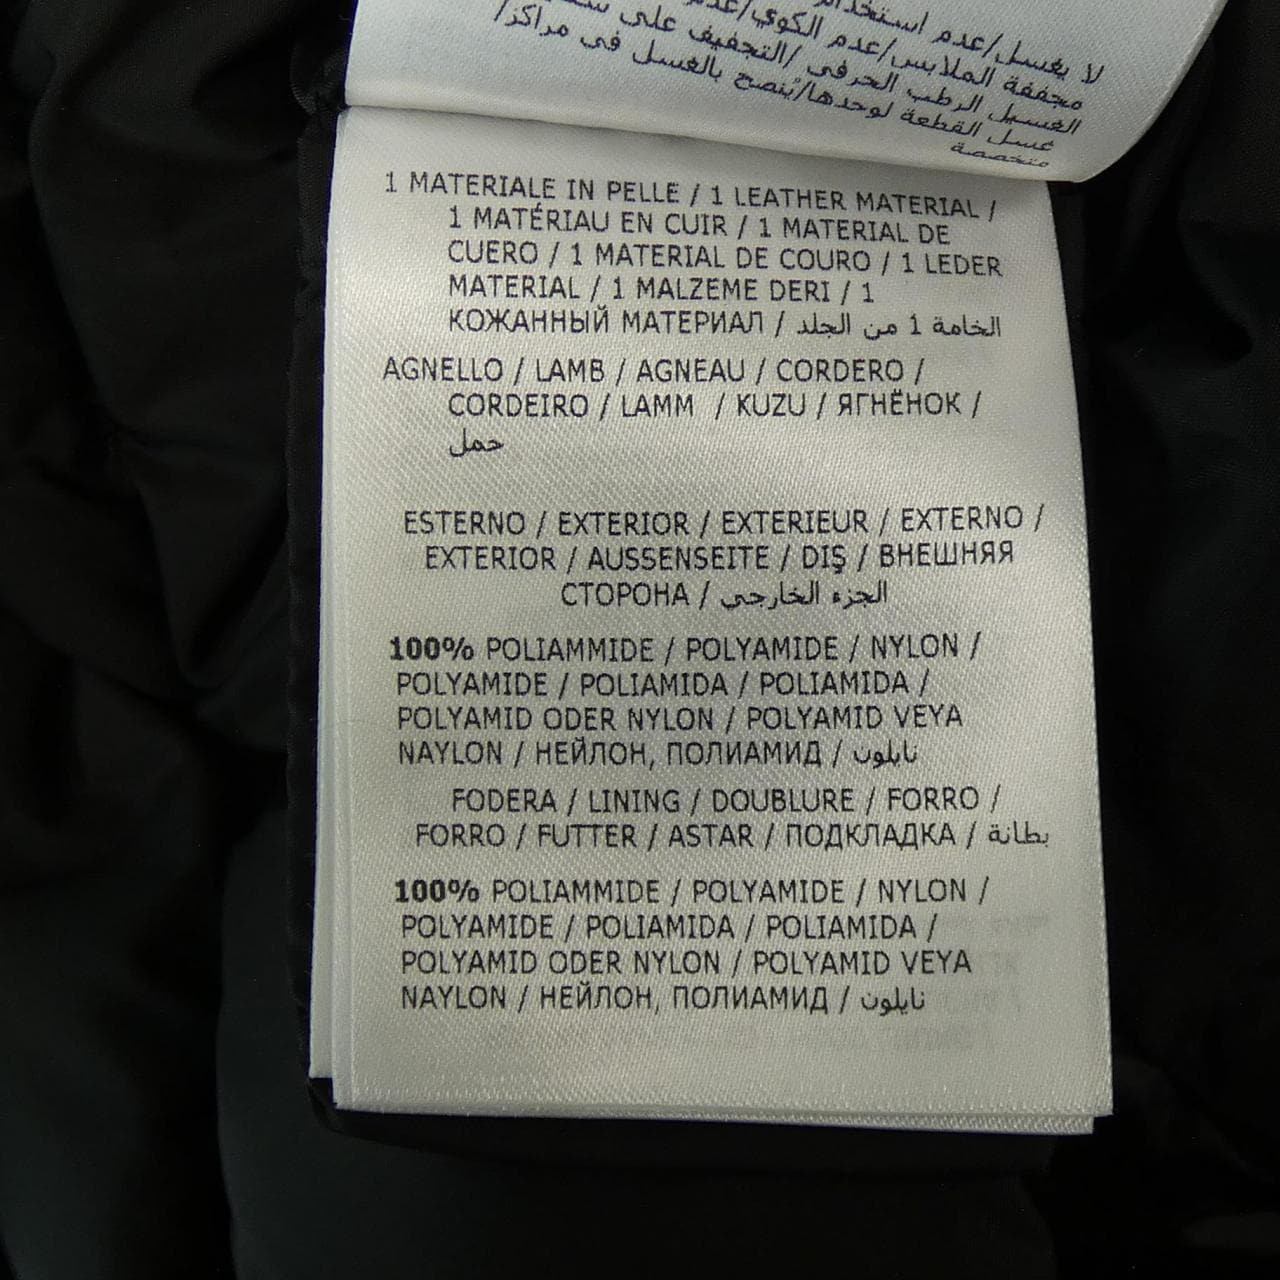 لا يغسل/عدم استخدام
مجففة الملابس/عدم الكوي/عدم
الغسيل الرطب الحرفي /التجفيف على
غسل القطعة لوحدها/يُنصح بالغسل في مراكز/
متخصصة
1 MATERIALE IN PELLE / 1 LEATHER MATERIAL /
1 MATÉRIAU EN CUIR / 1 MATERIAL DE
CUERO / 1 MATERIAL DE COURO / 1 LEDER
MATERIAL / 1 MALZEME DERI / 1
КОЖАННЫЙ МАТЕРИАЛ / الخامة 1 من الجلد
AGNELLO / LAMB / AGNEAU / CORDERO /
CORDEIRO / LAMM / KUZU / ЯГНЁНОК /
حمل
ESTERNO / EXTERIOR / EXTERIEUR / EXTERNO /
EXTERIOR / AUSSENSEITE / DIŞ / ВНЕШНЯЯ
СТОРОНА / الجزء الخارجي
100% POLIAMMIDE / POLYAMIDE / NYLON /
POLYAMIDE / POLIAMIDA / POLIAMIDA /
POLYAMID ODER NYLON / POLYAMID VEYA
NAYLON / НЕЙЛОН, ПОЛИАМИД / نايلون
FODERA / LINING / DOUBLURE / FORRO /
FORRO / FUTTER / ASTAR / ПОДКЛАДКА / بطانة
100% POLIAMMIDE / POLYAMIDE / NYLON /
POLYAMIDE / POLIAMIDA / POLIAMIDA /
POLYAMID ODER NYLON / POLYAMID VEYA
NAYLON / НЕЙЛОН, ПОЛИАМИД / نايلون